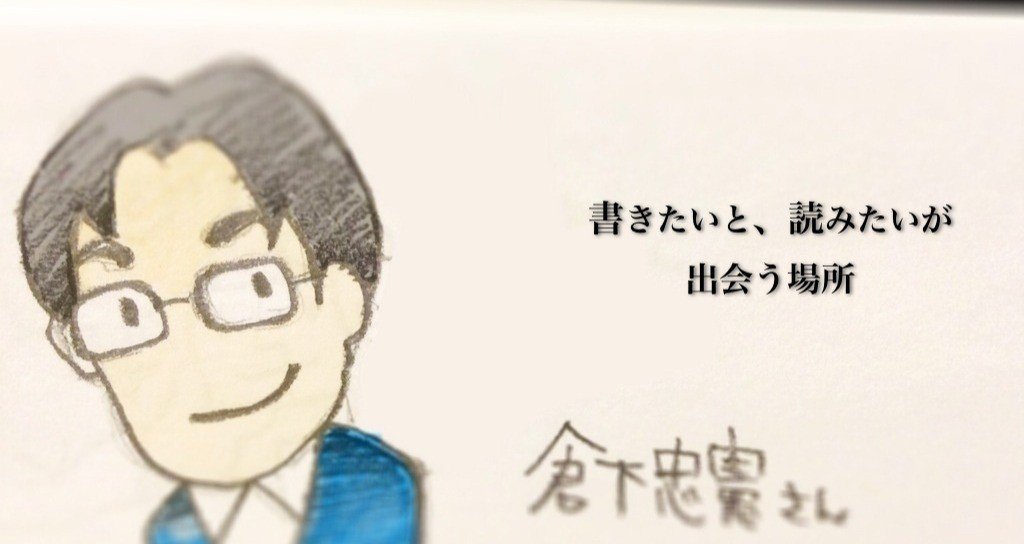 書きたいと、読みたいが
出会う場所
倉下忠憲さん